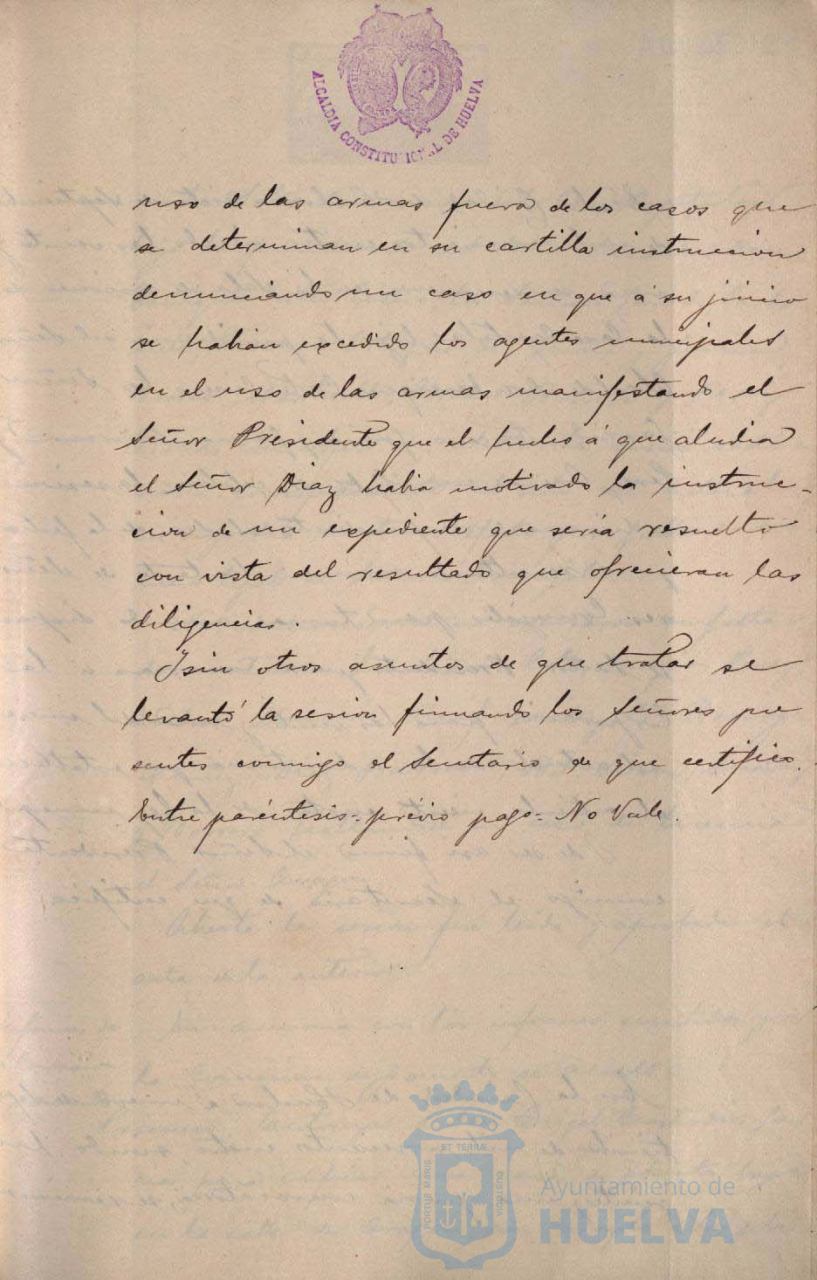 ALCALDIA CONSTITUCIONAL DE HUELVA
uso de las armas fuera de los casos que
se determinan en su cartilla instruccion
denunciando un caso en que á su juicio
se habian excedido los agentes municipales
en el uso de las armas manifestando el
Señor Presidente que el hecho á que aludia
el Señor Diaz habia motivado la instruc-
cion de un expediente que seria resuelto
con vista del resultado que ofrecieran las
diligencias.
Y sin otros asuntos de que tratar se
levantó la sesion firmando los Señores pre
sentes conmigo el Secretario de que certifico.
Entre paréntesis = prévio pago = No Vale.
ET TERRÆ
PORTUS MARIS
CUSTODIA
Ayuntamiento de
HUELVA